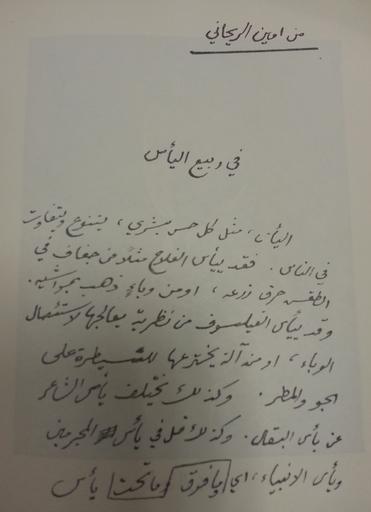 من امين الريحاني
في ربيع اليأس
اليأس، مثل كل حس بشري، يتنوع ويتفاوت
في الناس. فقد ييأس الفلاح مثلاً من جفاف في
الطقس حرق زرعه، او من وباءٍ ذهب بمواشيه.
وقد ييأس الفيلسوف من نظرية يعالجها لاستئصال
الوباء، او من آلة يخترعها للسيطرة على
الجو والمطر. وكذلك تختلف يأس الشاعر
عن يأس البقال. وكذلك قل في يأس المجرمين
ويأس الانبياء، اي ما فوق وما تحت يأس